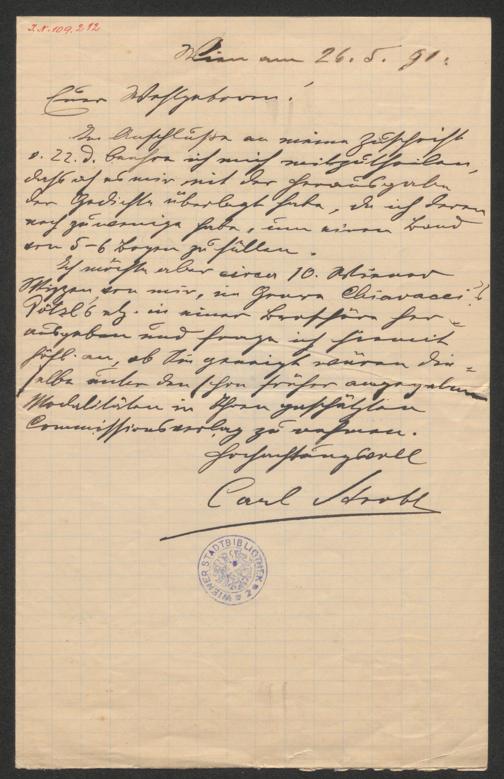 I.N. 109.212
Wien am 26. 5. 91.
Euer Wohlgeboren!
Im Anschluße an meine Zuschrift
v. 22. d. beehre ich mich mitzutheilen,
daß ich es mir mit der Herausgabe
der Gedichte überlegt habe, da ich deren
noch zu wenige habe, um einen Band
von 5-6 Bogen zu füllen.
Ich möchte aber circa 10. Wiener
Skizzen von mir, im Genre Chiavacci's
Pötzl's etz. in einer Broschüre her-
ausgeben und frage ich hiemit
höfl. an, ob Sie geneigt wären die-
selbe unter den schon früher angegebenen
Modalitäten in Ihren geschätzten
Commissionsverlag zu nehmen.
Hochachtungsvoll
Carl Strobl
WIENER STADTBIBLIOTHEK